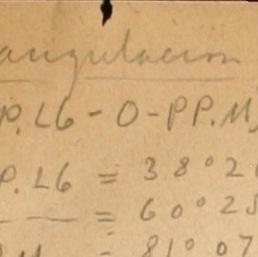 angulacion
P.L6-O-PP.M
P.L6 = 38°2
= 60°25
= 81°07